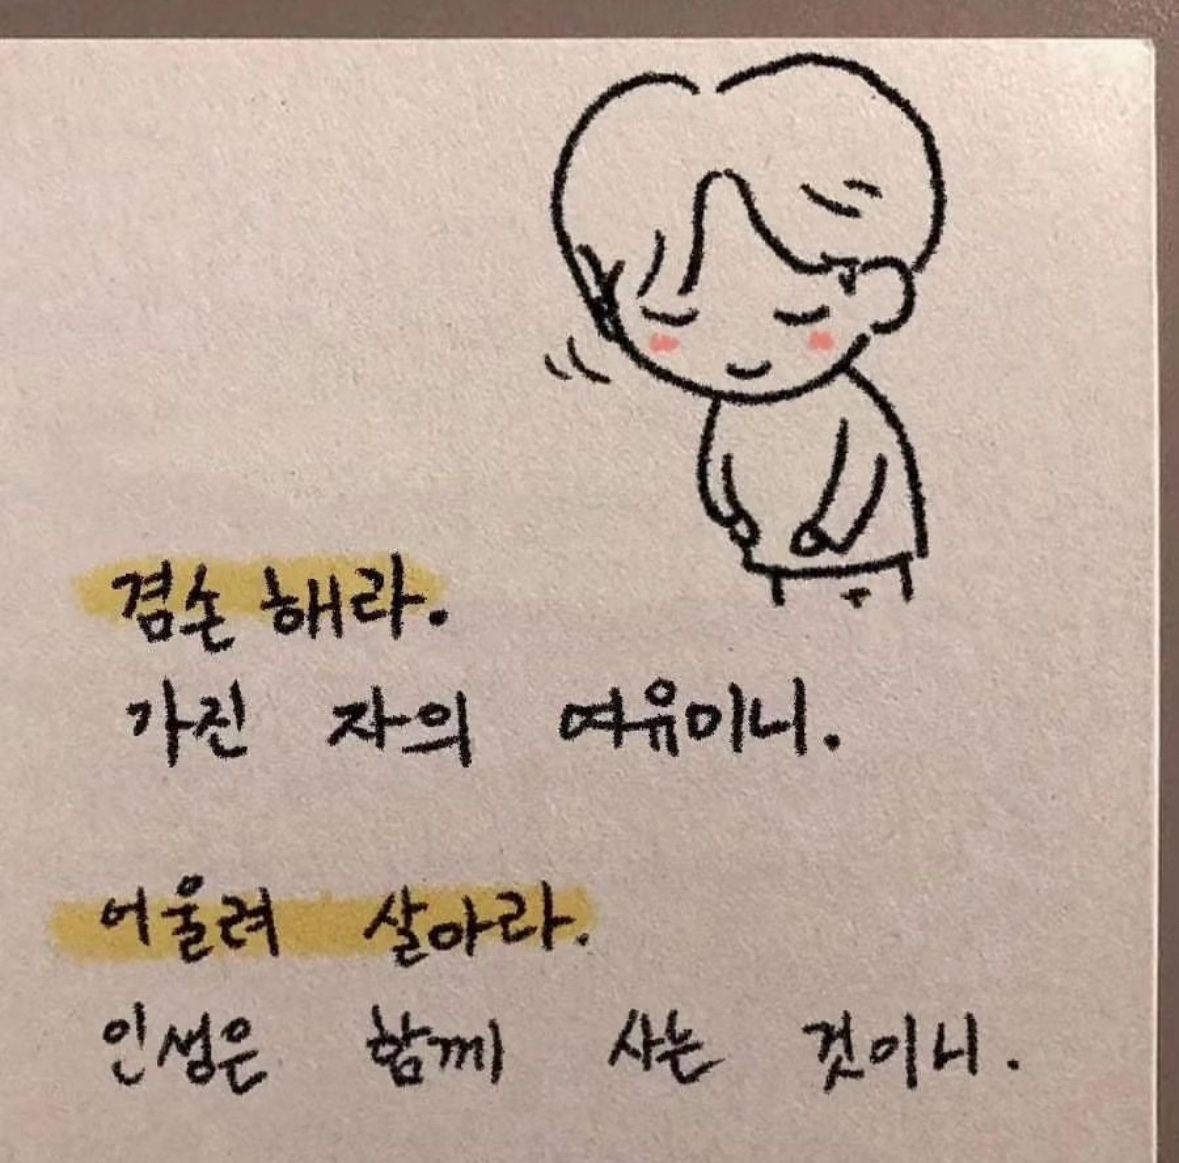 겸손해라.
가진 자의 여유이니.
어울려 살아라.
인생은 함께 사는 것이니.